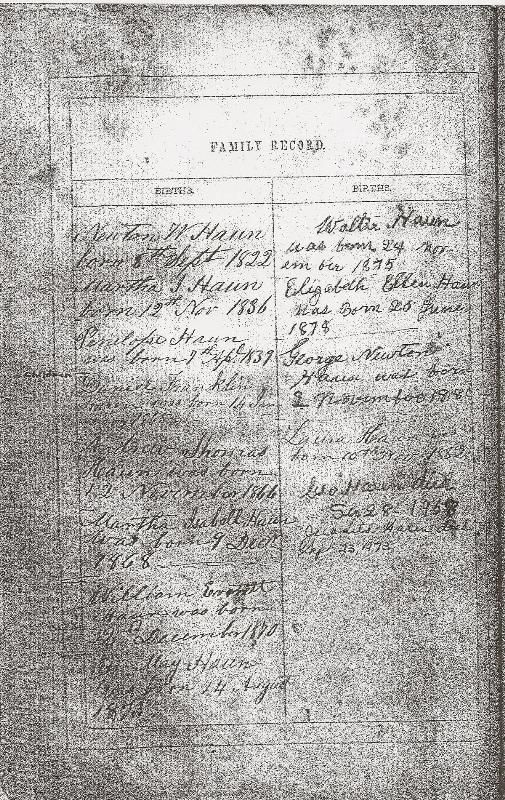 FAMILY RECORD.
BIRTHS.
Newton W Haun
born 8th Sept 1822
Martha J Haun
born 12th Nov 1836
Penelope Haun
was born 7th 1859
Daniel Franklin
was born 14
Andrew Thomas
Haun was born
12 November 1866
Martha Isabell Haun
was born 9 Decm
1868
William Everett
Haun was born
December 1870
May Haun
was born 24 August
BIRTHS.
Walter Haun
was born 24 Nov
em ber 1875
Elizabeth Ellen Haun
was Born 25 June
1878
George Newton
Haun was born
2 November 188
Laura Haun
born 10th
Geo Haun died
Sep 28 - 1958
Haun
Sep 23 1973